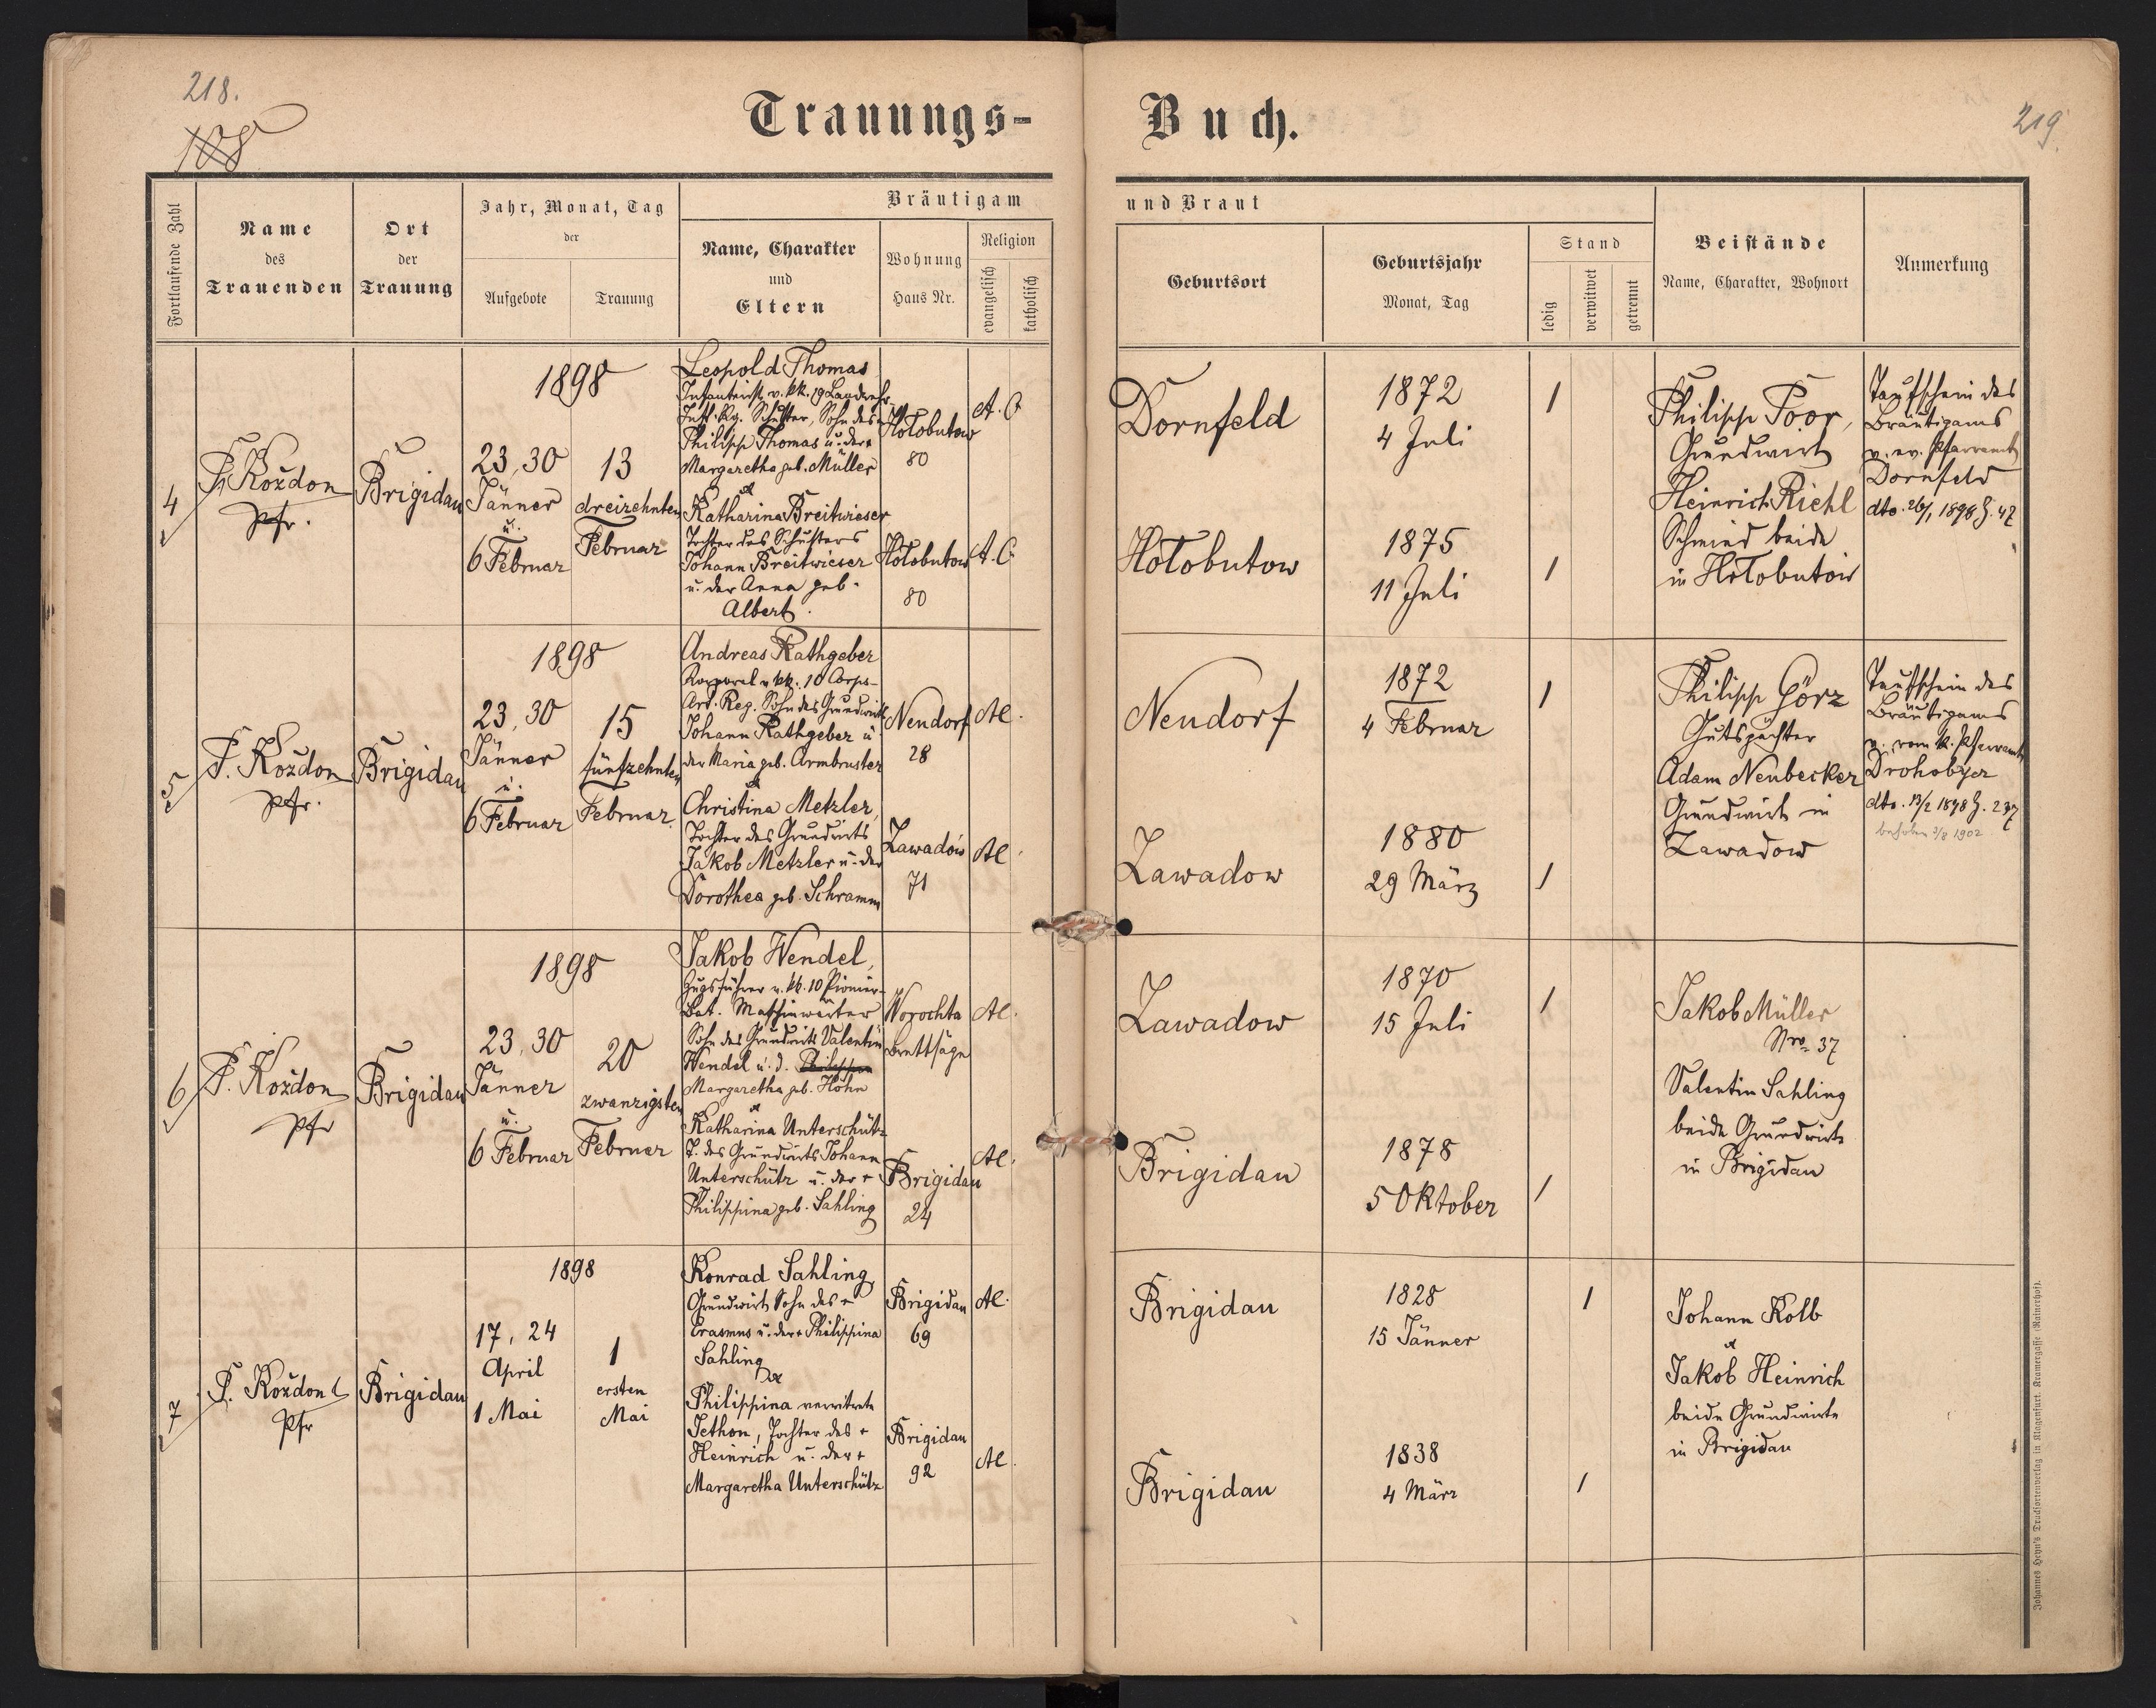 218.
108
Trauungs-
Buch.
219
Fortlaufende Zahl
Name
des
Trauenden
Ort
der
Trauung
Jahr, Monat, Tag
der
Aufgebote
Trauung
Bräutigam
Name, Charakter
und
Eltern
Wohnung
Haus Nr.
Religion
evangelisch
katholisch
und Braut
Geburtsort
Geburtsjahr
Monat, Tag
Stand
ledig
verwitwet
getrennt
Beistände
Name, Charakter, Wohnort
Anmerkung
4
Koždon
Pfr.
Brigidau
1898
23, 30
Jänner
u.
6 Februar
13
dreizehnten
Februar
Leopold Thomas
Infanterist v. kk. 19 Landwehr
Inft. Rg. Schuster, Sohn des
Philipp Thomas u. der +
Margaretha geb. Müller
&
Katharina Breitwieser
Tochter des Schusters
Johann Breitwieser
u. der Anna geb.
Albert.
Hołobutow
80
Hołobutow
80
A. C
A. C
Dornfeld
Hołobutow
1872
4 Juli
1875
11 Juli
1
1
Philipp Poor,
Grundwirt
Heinrich Riehl
Schmied beide
in Hołobutow
Taufschein des
Bräutigams
v. ev. Pfarramt
Dornfeld
dto. 26/1 1898 Z. 47
5
P. Koždon
Pfr.
Brigidau
1898
23, 30
Jänner
u.
6 Februar
15
fünfzehnten
Februar
Andreas Rathgeber
Korporal v. kk. 10 Corps-
Art. Reg. Sohn des Grundwirts
Johann Rathgeber u
der Maria geb. Armbruster
&
Christina Metzler,
Tochter des Grundwirts
Jakob Metzler u. der
Dorothea geb. Schramm
Neudorf
28
Zawadow
71
AC.
AC.
Neudorf
Zawadow
1872
4 Februar
1880
29 März
1
1
Philipp Görz
Gutspächter
Adam Neubecker
Grundwirt in
Zawadow
Taufschein des
Bräutigams
v. röm k. Pfarramte
Drohobycz
dto. 13/2 1898 Z. 237
1902
6
P. Koždon
Pfr
Brigidau
1898
23, 30
Jänner
u.
6 Februar
20
zwanzigsten
Februar
Jakob Wendel,
Zugsführer v. kk. 10 Pionier-
Bat. Maschinwärter
Sohn des Grundwirts Valentin
Wendel u. d. Philippina
Margaretha geb. Hohn
&
Katharina Unterschütz
T. des Grundwirts Johann
Unterschütz u. der +
Philippina geb. Sahling
Worochta
Brettsäge
Brigidau
24
AC.
AC.
Zawadow
Brigidau
1870
15 Juli
1878
5 Oktober
1
1
Jakob Müller
Nro 37
Valentin Sahling
beide Grundwirte
in Brigidau
7
P. Koždon
Pfr
Brigidau
1898
17, 24
April
1 Mai
1
ersten
Mai
Konrad Sahling,
Grundwirt Sohn des +
Erasmus u. der + Philippina
Sahling
&
Philippina verwitwete
Jethon, Tochter des +
Heinrich u. der +
Margaretha Unterschütz
Brigidau
69
Brigidau
92
AC.
AC.
Brigidau
Brigidau
1828
15 Jänner
1838
4 März
1
1
Johann Kolb
&
Jakob Heinrich
beide Grundwirte
in Brigidau
Johannes Heyn's Drucksortenverlag in Klagenfurt, Kramergasse (Rainerhof).